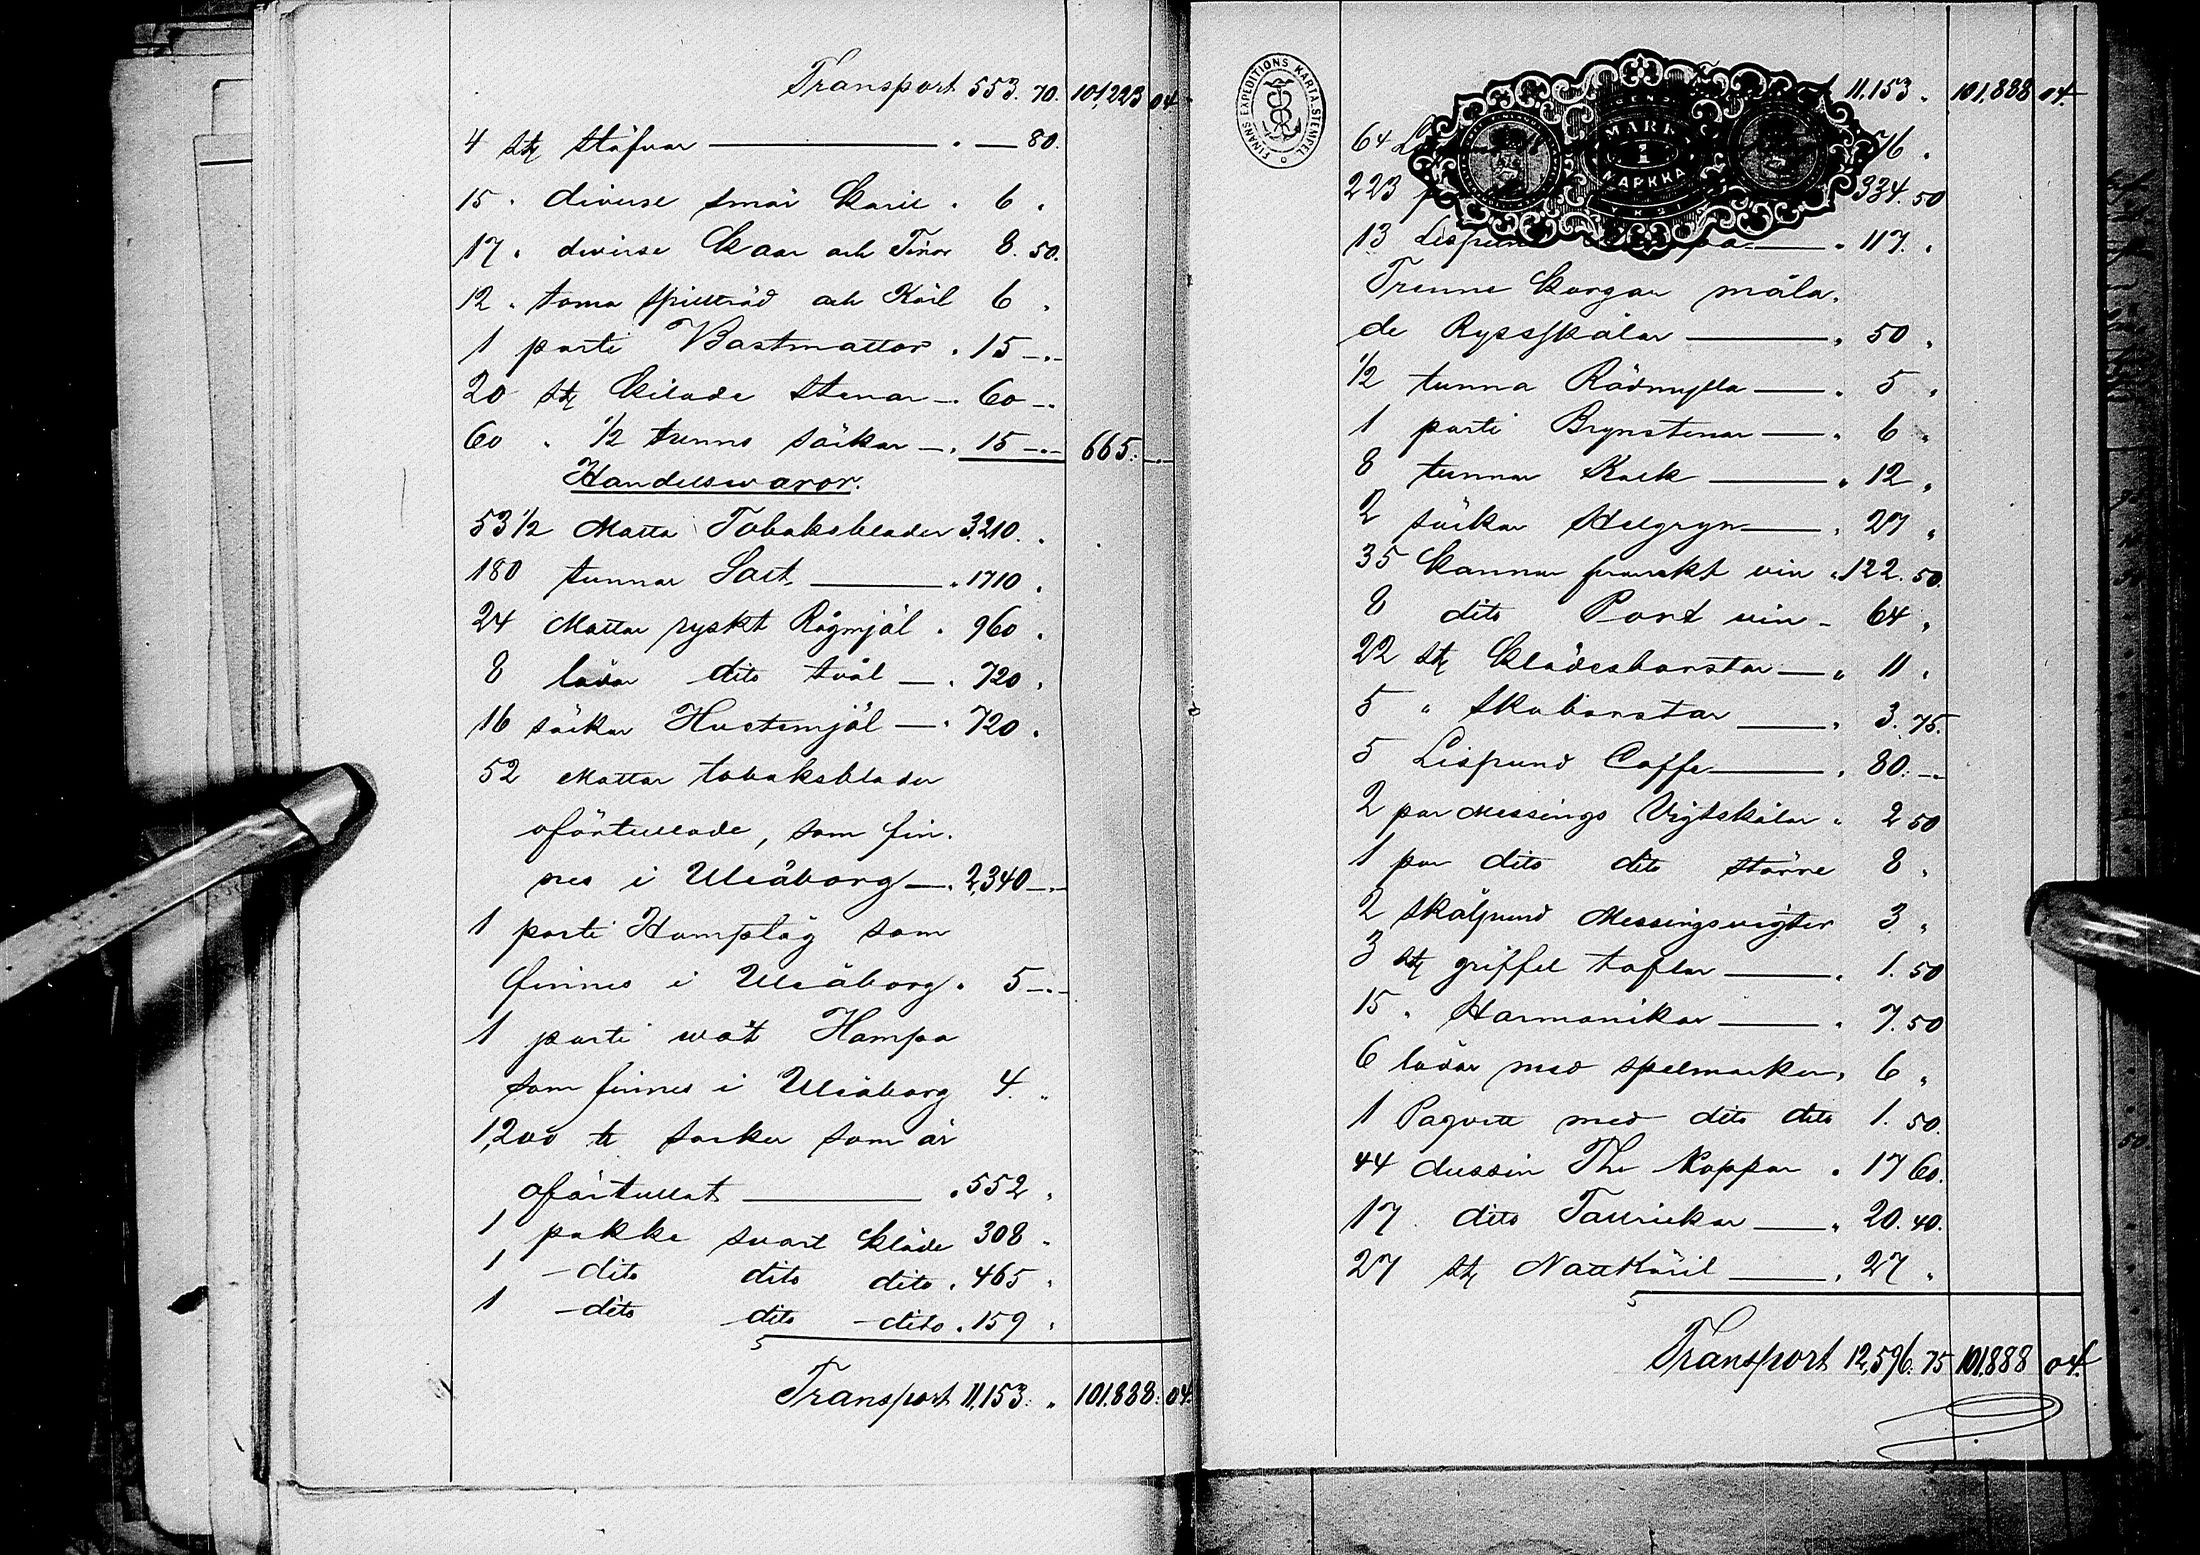 Transport 553. 70. 101,223 04
4 st. stäfvar — . — 80.
15 . diverse små Käril . 6 .
17 . diverse Kaar och Tinor 8. 50.
12 . toma och Käril 6 .
1 parti Bastmattor . 15 -.-
20 st. Kilade stenar - . 60 -.
60 . 1/2 tunns säckar - . 15 -.- 665. -.-
Handelswaror.
53 1/2 Matta Tobaksblader 3,210. .
180 tunnar Salt — . 1710 .
24 Mattar ryskt Rågmjöl . 960 .
8 lådor dito tvål — . 720 .
16 säckar Hvetemjöl — . 720 .
52 Mattar tobaksblader
oförtullade, som fin-
nes i Uleåborg — . 2,340 -.-
1 parti Hamptåg som
finnes i Uleåborg . 5 -.-
1 parti wåt Hampa
som finnes i Uleåborg 4. .
1,200 ℔ socker som är
oförtullat — . 552 .
1 pakke svart kläde 308 .
1 - dito dito dito . 465 .
1 - dito dito - dito . 159 .
Transport 11,153. . 101,888. 04.
FINANS EXPEDITIONS KARTA.STEMPEL
MARK
1
МАРККА
11,153 . 101,888 04.
64 516 .
223 334. 50
13 Lispund — . 117. .
Trenne Korgar måla-
de Ryssskålar — . 50 .
1/2 tunna Rödmylla — . 5 .
1 parti Brynstenar — . 6 .
8 tunnor Kalk — . 12 .
2 säckar Helgryn — . 27 .
35 Kannor franskt vin . 122. 50.
8 dito Port vin - 64 .
22 st. Klädesborstar — . 11 .
5 " Skoborstar — . 3. 75.
5 Lispund Caffe — . 80. -.
2 par Messings Vigtskålar . 2 50
1 par dito dito större 8 .
2 skålpund Messingsvigter 3 .
3 st. griffel taflor — . 1. 50
15 . Harmonikor — . 7. 50
6 lådor med spelmarker . 6 .
1 Paquett med dito dito 1. 50.
44 dussin The Koppar . 17 60.
17 dito Tallrickar — . 20. 40.
27 st. Nattkäril — . 27 .
Transport 12,596. 75 101,888 04.